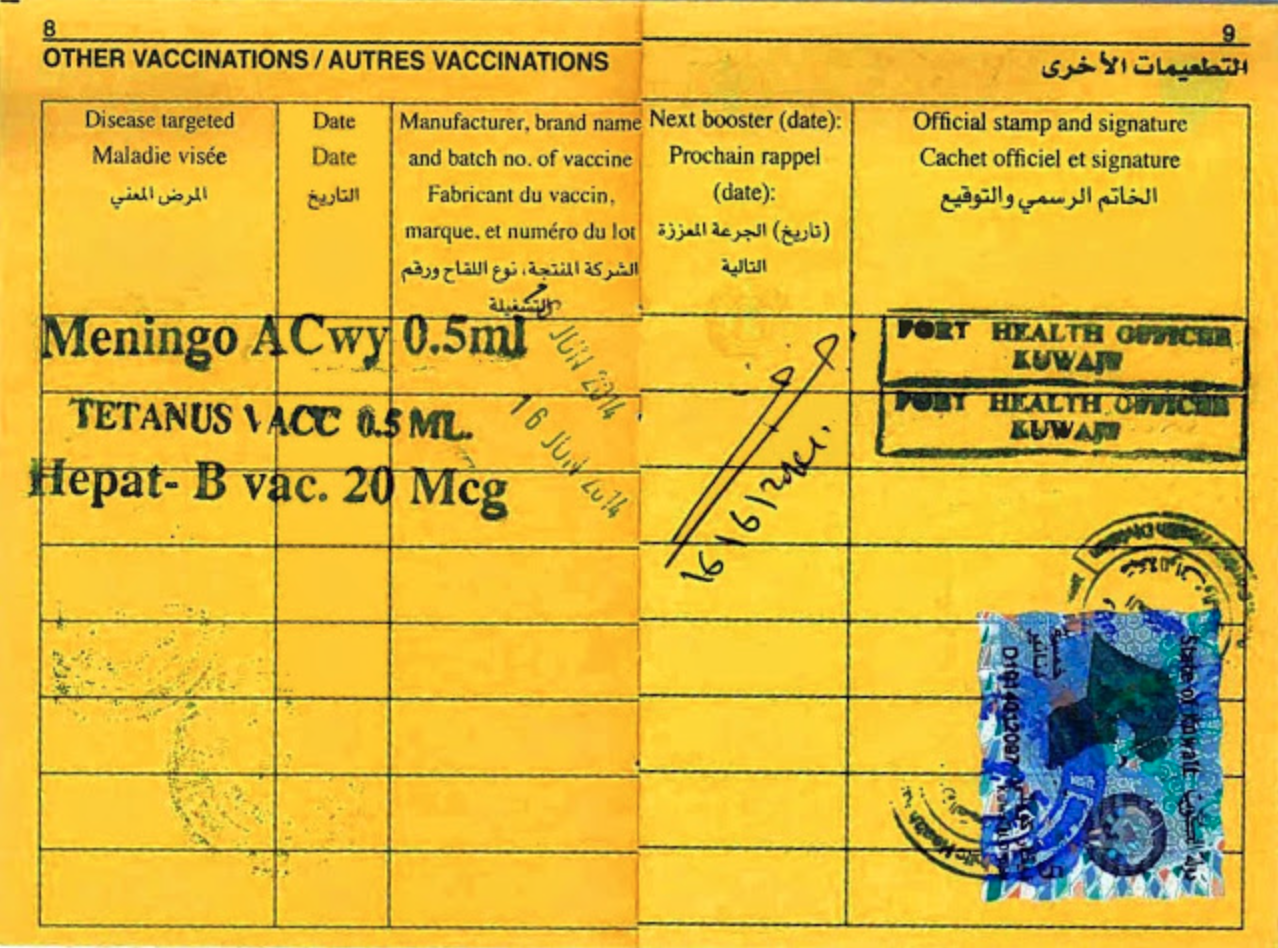 8
OTHER VACCINATIONS / AUTRES VACCINATIONS
Disease targeted
Maladie visée
المرض المعني
Date
Date
التاريخ
Manufacturer, brand name
and batch no. of vaccine
Fabricant du vaccin,
marque, et numéro du lot
الشركة المنتجة، نوع اللقاح ورقم
التشغيلة
Meningo ACwy 0.5ml
JUN 2014
TETANUS VACC 0.5 ML.
16 JUN 2014
Hepat- B vac. 20 Mcg
9
التطعيمات الأخرى
Next booster (date):
Prochain rappel
(date):
(تاريخ) الجرعة المعززة
التالية
Official stamp and signature
Cachet officiel et signature
الخاتم الرسمي والتوقيع
PORT HEALTH OFFICER
KUWAIT
PORT HEALTH OFFICER
KUWAIT
16/6/2014.
State of Kuwait
دولة الكويت
خمسة
دنانير
5